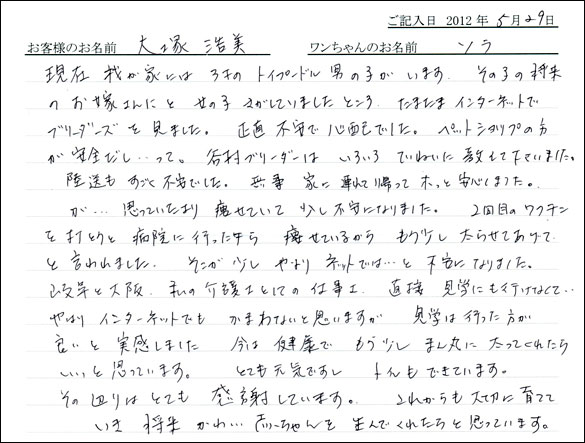 ご記入日 2012 年 5月29日
お客様のお名前 大塚 浩美 ワンちゃんのお名前 ソラ
現在 我が家には 3才の トイプードル 男の子が います. その子の将来
の お嫁さんにと 女の子 さがしていましたところ. たまたま インターネットで
ブリーダーズ を 見ました。 正直 不安で 心配でした。 ペットショップの方
が 安全だし…って。 谷村ブリーダーは いろいろ ていねいに 教えて下さいました。
陸送も すごく 不安でした。 無事 家に 連れて帰って ホッと 安心しました。
が… 思っていたより 痩せていて 少し不安になりました。 2回目のワクチン
を 打とうと 病院に行ったら 痩せているから もう少し 太らせてあげて
と 言われました. そこが少し やはり ネットでは… と 不安になりました。
岐阜と大阪. 私の 介護士としての仕事上. 直接 見学にも行けなくて‥
やはり インターネットでも かまわないと思いますが 見学は行った方が
良いと 実感しました 今は 健康で もう少し まん丸に 太ってくれたら
いいと思っています。 とても元気ですし トんもできています。
その辺りは とても 感謝しています。 これからも 大切に 育てて
いき 将来 かわ… 赤ちゃんを 生んでくれたらと思っています。